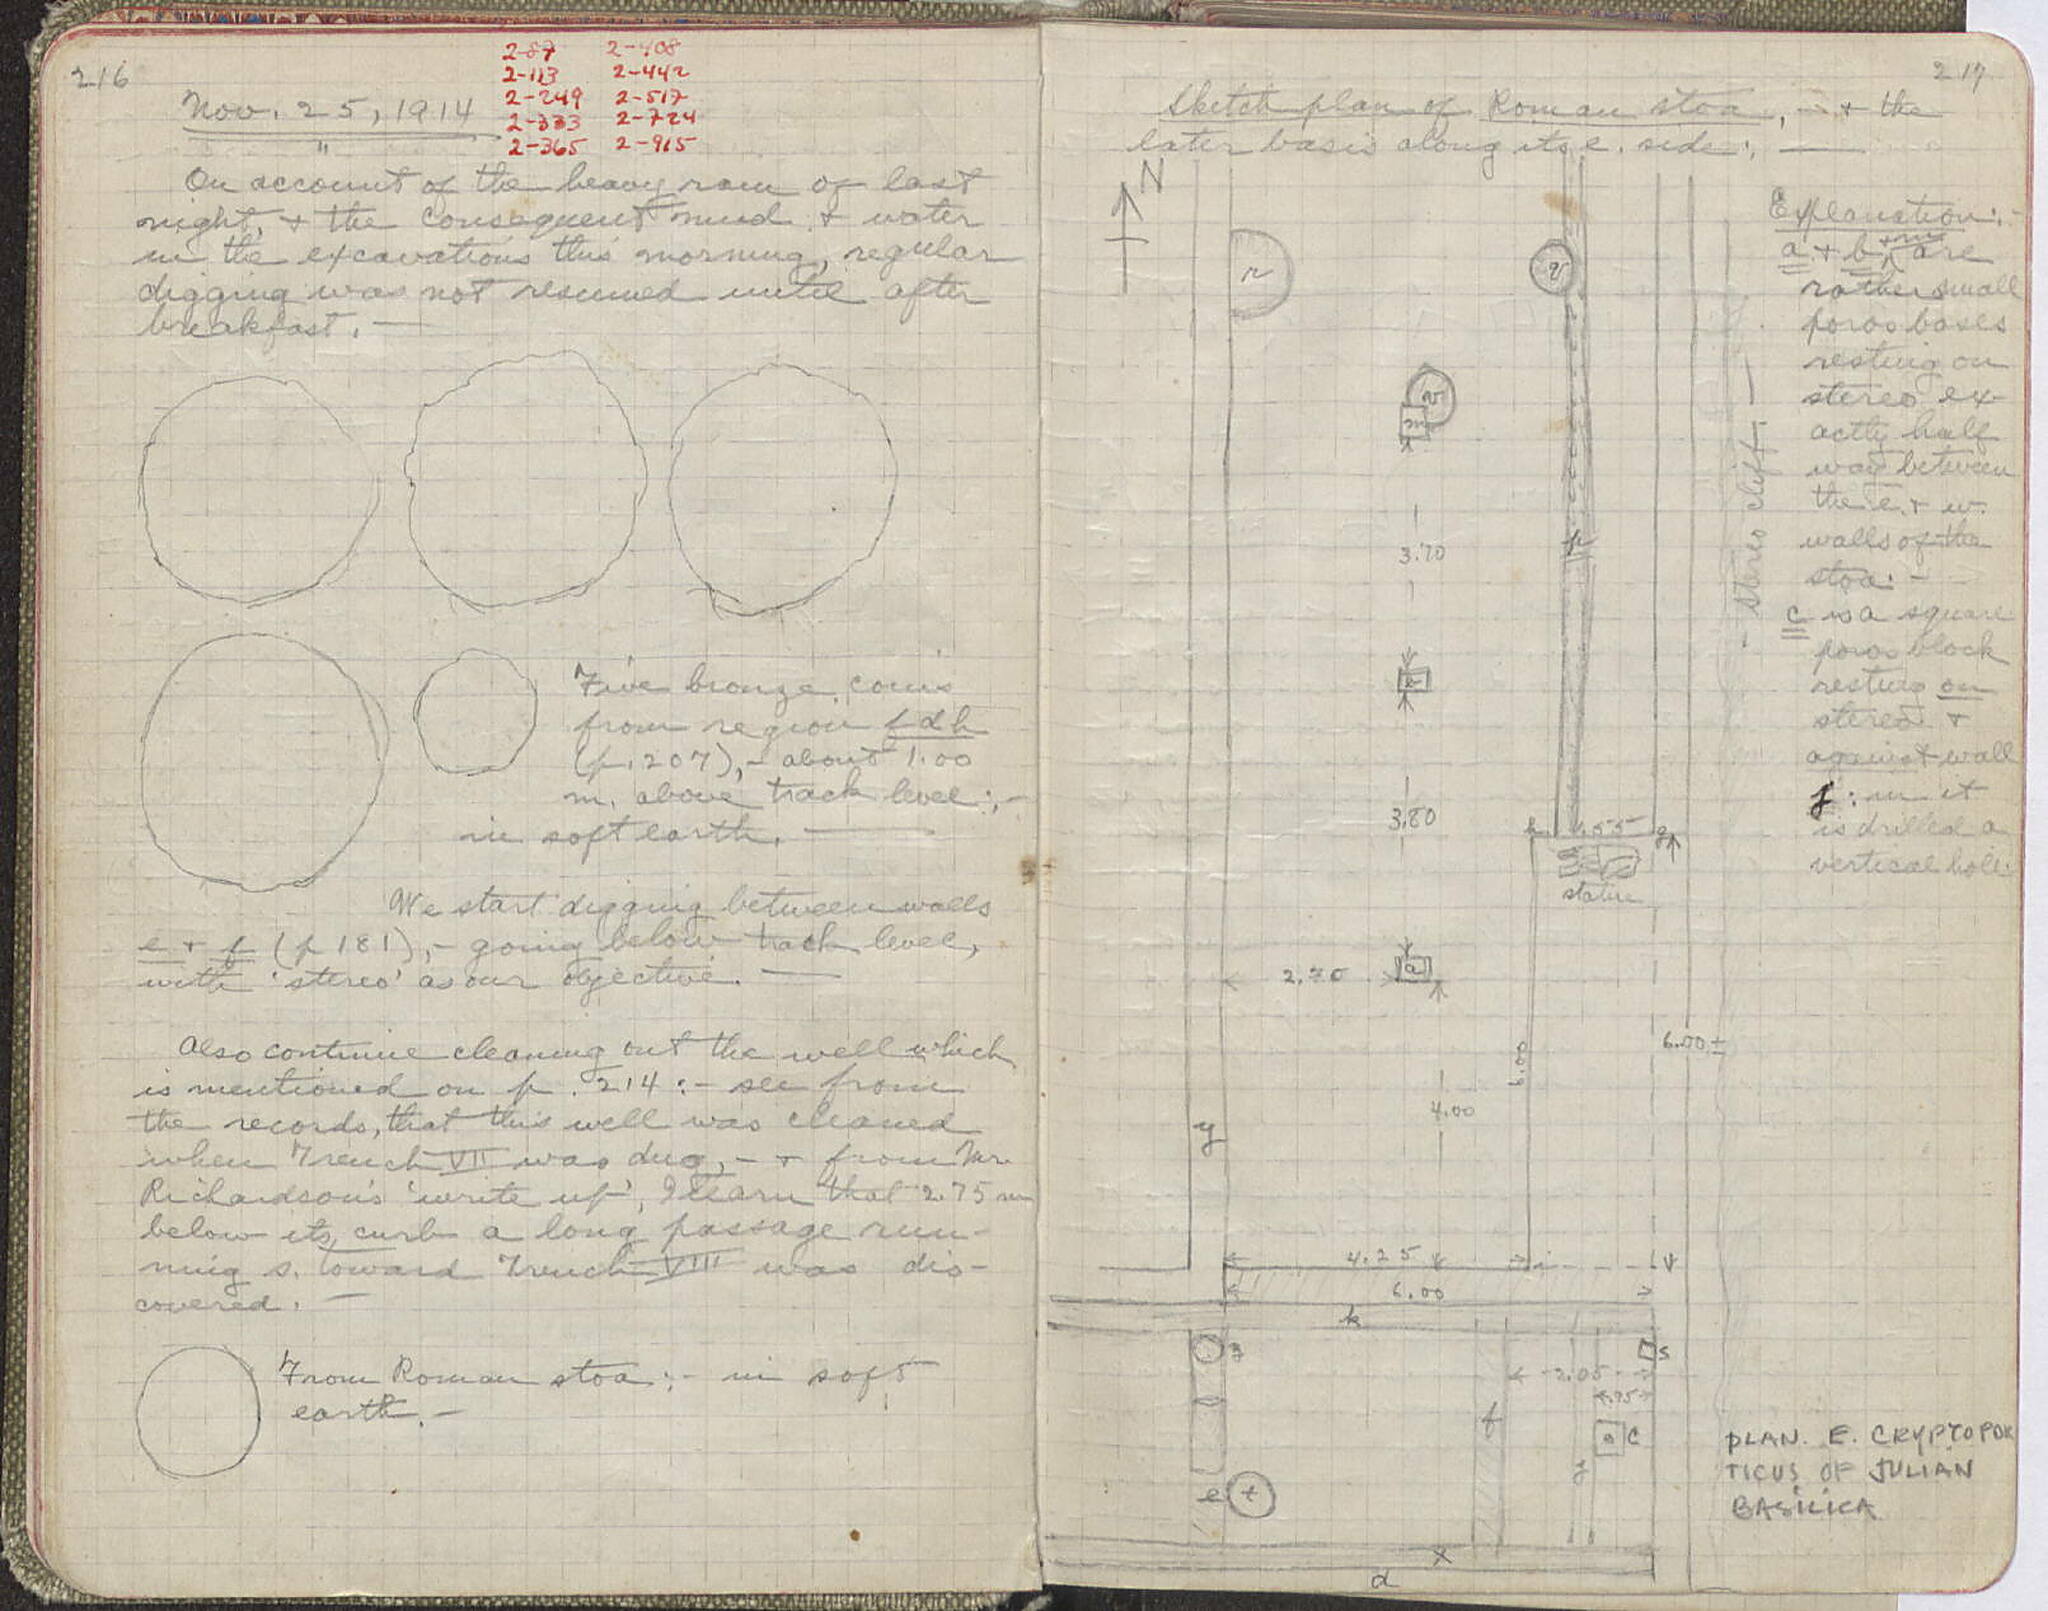 216
2-87 2-408
2-113 2-442
2-249 2-517
2-333 2-724
2-365 2-915
Nov. 25, 1914
"
On account of the heavy rain of last
night, + the consequent mud + water
in the excavations this morning, regular
digging was not resumed until after
breakfast. —
Five bronze coins
from region fdh
(p. 207), - about 1.00
m. above track level:, -
in soft earth. —
We start digging between walls
e + f (p 181), - going below track level,
with 'stereo' as our objective. —
Also continue cleaning out the well which
is mentioned on p. 214 : - see from
the records, that this well was cleaned
when Trench VII was dug, - + from Mr.
Richardson's 'write up', I learn that 2.75 m
below its curb a long passage run-
ning s. toward Trench VIII was dis-
covered. —
From Roman stoa :, - in soft
earth. —
217
Sketch plan of Roman stoa, - + the
later basis along its e. side:, —
N
r
q
v
m
3.70
p
b
3.80
h 1.55 g
statue
2.70
a
6.00
4.00
6.00 ±
y
4.25
6.00
k
z
s
2.05
.75
f
c
j
e t
x
d
- stereo cliff -
Explanation:, -
a + b + m are
rather small
poros bases
resting on
stereo ex-
actly half
way between
the e. + w.
walls of the
stoa: -
c is a square
poros block
resting on
stereo +
against wall
j : in it
is drilled a
vertical hole:
PLAN. E. CRYPTOPOR
TICUS OF JULIAN
BASILICA